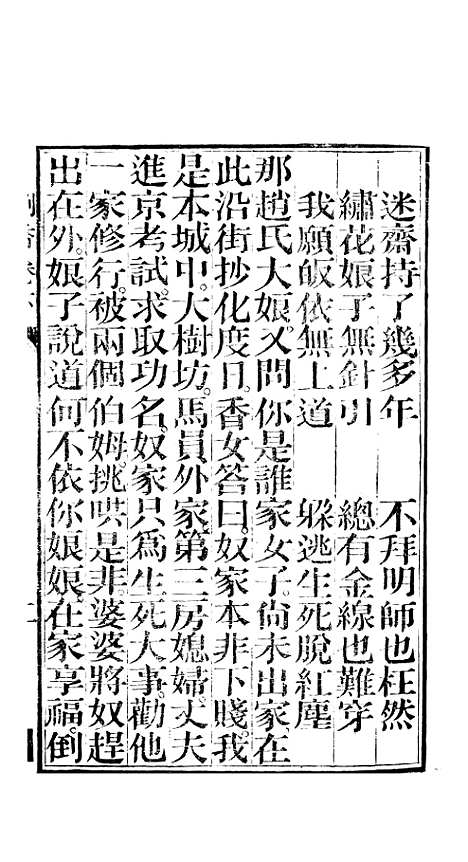 迷齋持了幾多年　不拜明師也枉然
繡花娘子無針引　總有金線也難穿
我願皈依無上道　躲逃生死脫紅塵
那趙氏大娘。又問你是誰家女子。尙未出家。在
此沿街抄化度日。香女答曰。奴家本非下賤。我
是本城中。大樹坊。馬員外家。第三房媳婦。丈夫
進京考試。求取功名。奴家只為生死大事。勸他
一家修行。被兩個伯姆。挑哄是非。婆婆將奴趕
出在外。娘子說道何不依你娘娘。在家享福。倒